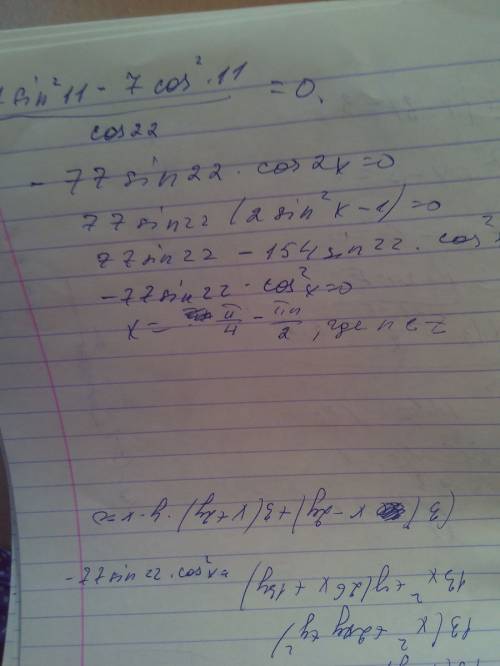 sin²11 - 7 cos²·11
= 0.
cos22
- 77 sin22 · cos2x=0
77 sin22 (2 sin²x-1)=0
77 sin22 - 154 sin22 · cos²
-77 sin22 · cos²x=0
x= π/4 - πn/2, где n ∈ Z
(3(x-2y)+3(x+2y)·y-x=0
-77 sin22 · cos²x=
13x²+y(26x+13y)
13(x²+2xy+y²)